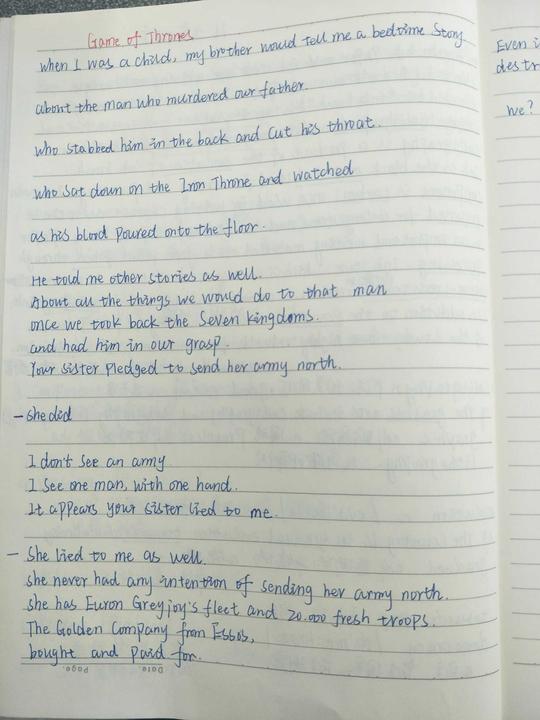 Game of Thrones
when I was a child, my brother would tell me a bedtime story
about the man who murdered our father.
who stabbed him in the back and cut his throat.
who sat down on the Iron Throne and watched
as his blood poured onto the floor.
He told me other stories as well.
About all the things we would do to that man
once we took back the Seven kingdoms.
and had him in our grasp.
Your sister pledged to send her army north.
- she did
I don't see an army
I see one man, with one hand.
It appears your sister lied to me.
- She lied to me as well.
she never had any intention of sending her army north.
she has Euron Greyjoy's fleet and 20.000 fresh troops.
The Golden Company from Essos,
bought and paid for.
Date
Page
Even i
destr
we?